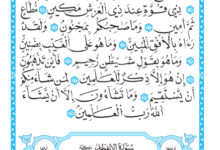 ذِي قُوَّةٍ عِندَ ذِي ٱلْعَرْشِ مَكِينٍ مُّطَاعٍ
ثَمَّ أَمِينٍ وَمَا صَاحِبُكُم بِمَجْنُونٍ وَلَقَدْ
رَءَاهُ بِٱلْأُفُقِ ٱلْمُبِينِ وَمَا هُوَ عَلَى ٱلْغَيْبِ بِضَنِينٍ
وَمَا هُوَ بِقَوْلِ شَيْطَٰنٍ رَّجِيمٍ فَأَيْنَ تَذْهَبُونَ
إِنْ هُوَ إِلَّا ذِكْرٌ لِّلْعَٰلَمِينَ لِمَن شَآءَ مِنكُمْ
أَن يَسْتَقِيمَ وَمَا تَشَآءُونَ إِلَّآ أَن يَشَآءَ
ٱللَّهُ رَبُّ ٱلْعَٰلَمِينَ
سُورَةُ الانفطار